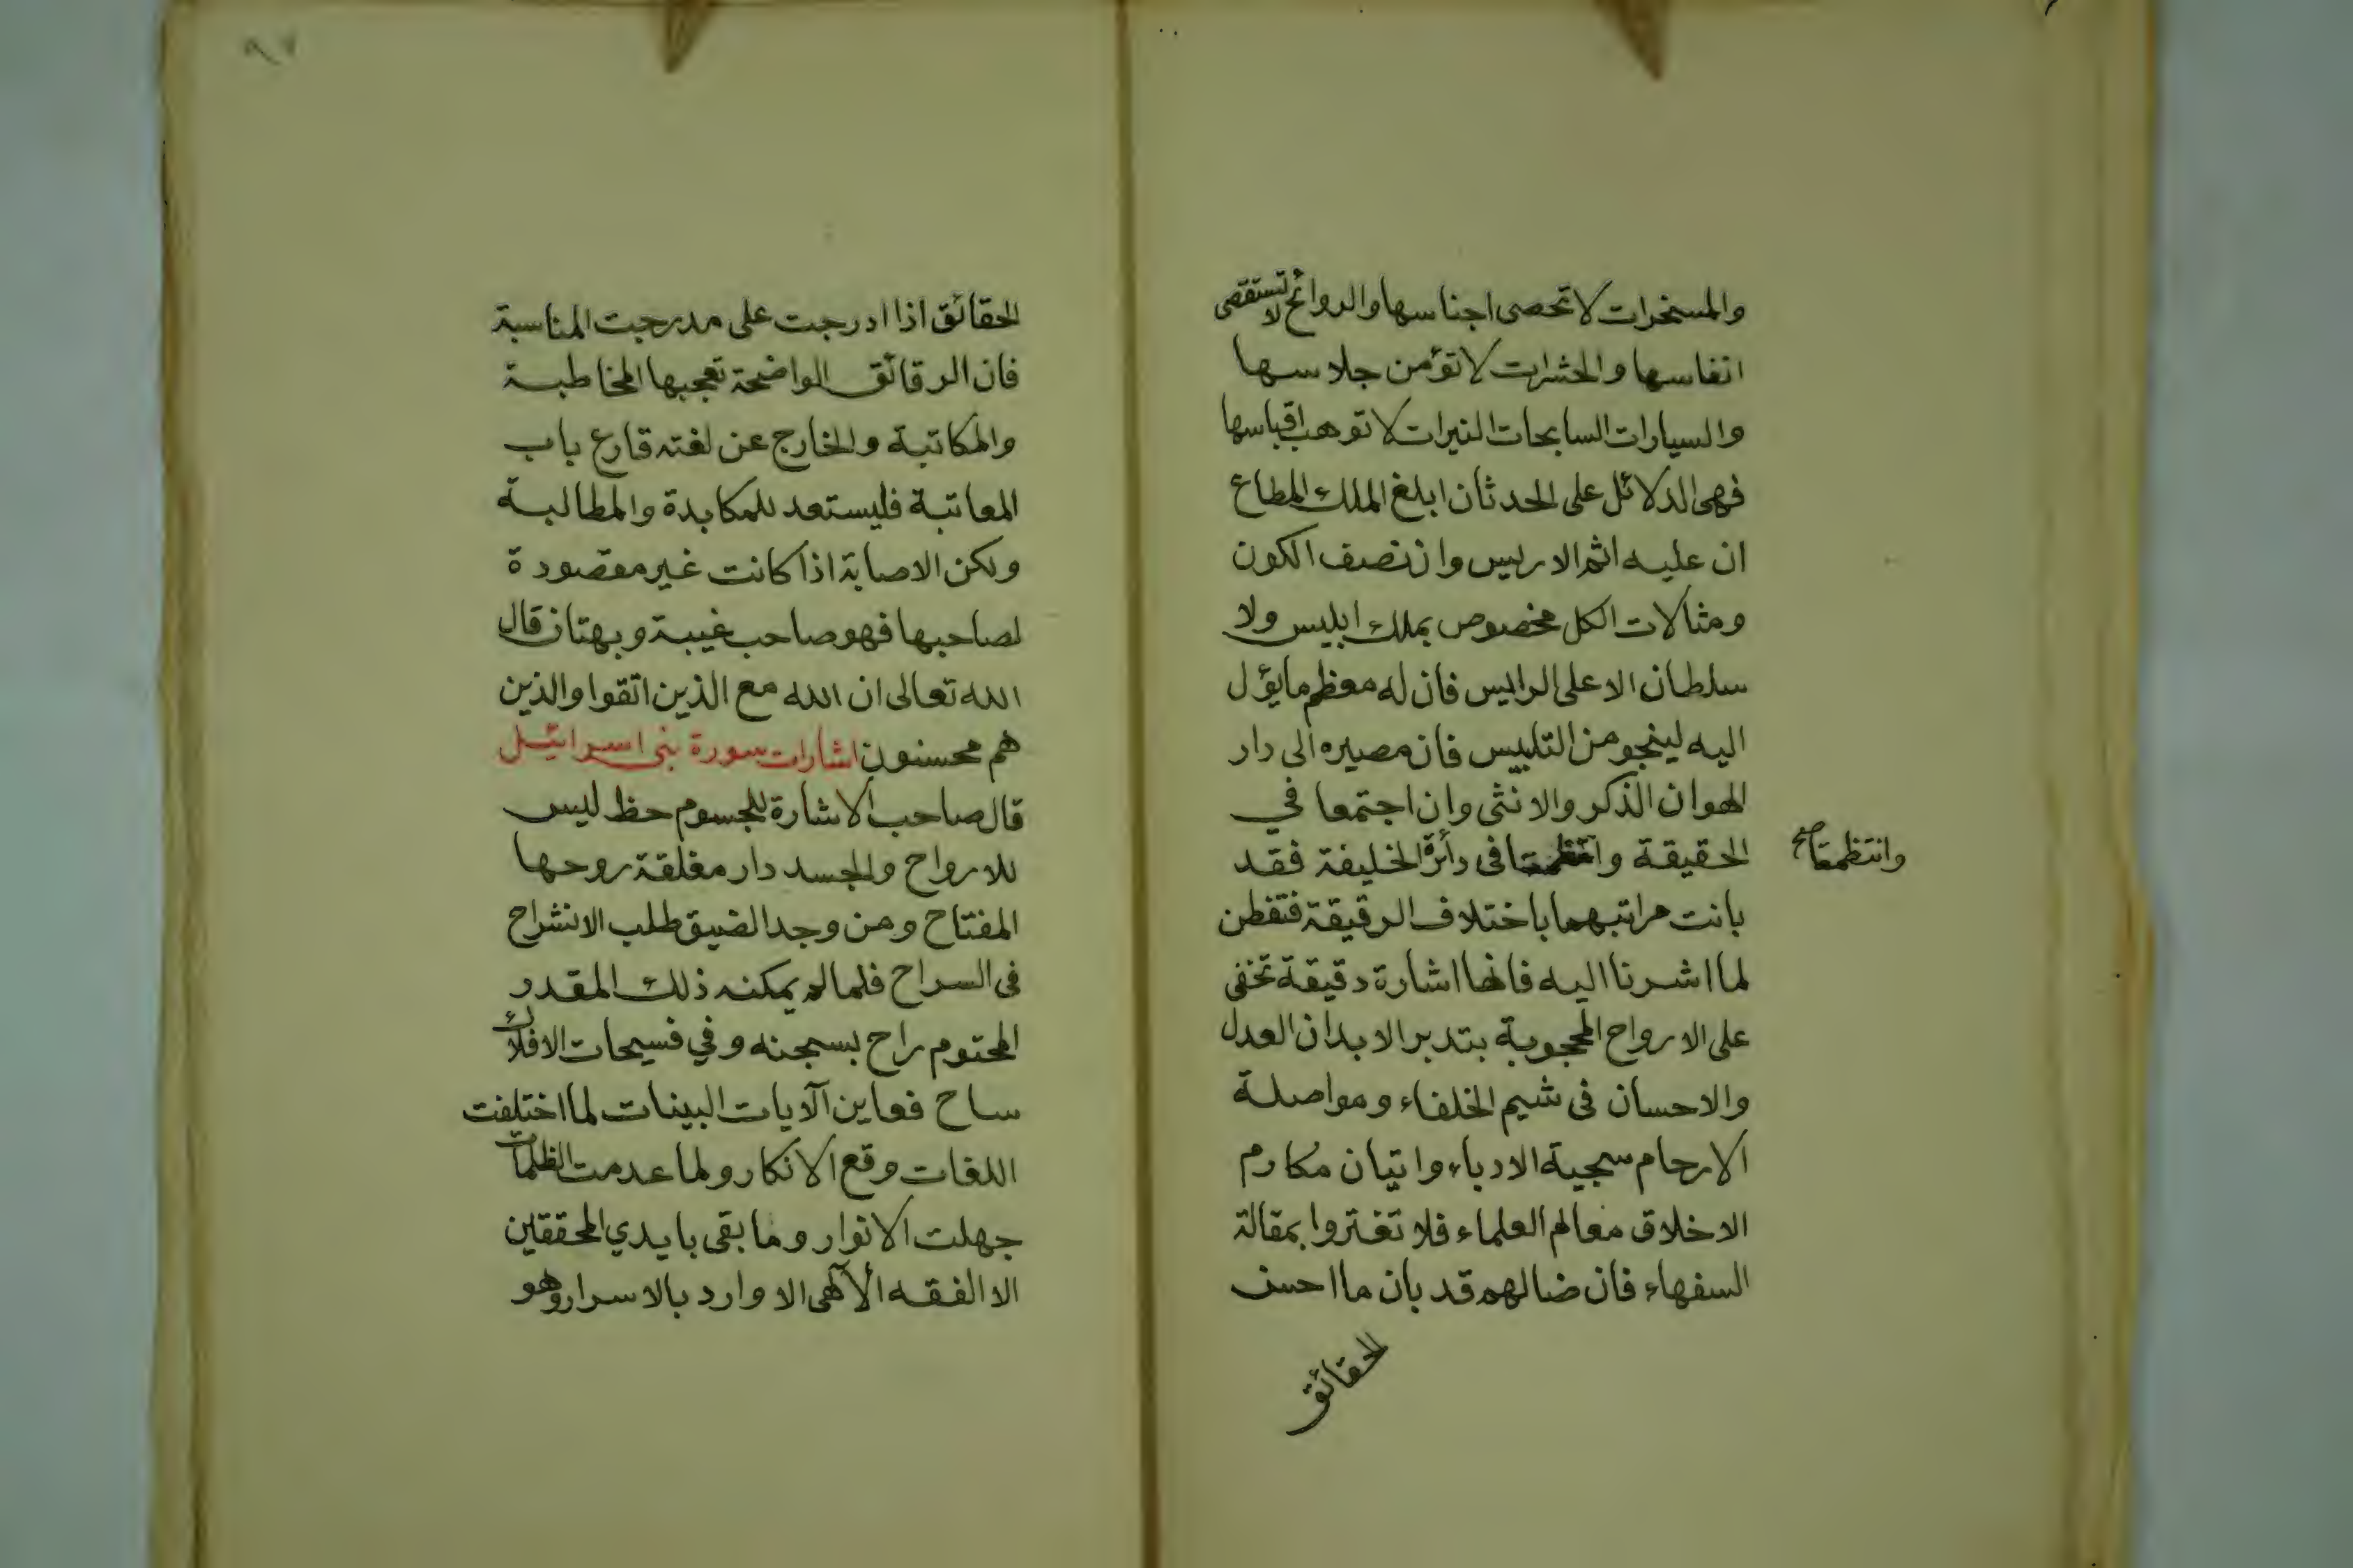 والمسخرات لا تحصى اجناسها والروائح لا تستقصى
انفاسها والحشرات لا تؤمن جلاسها
والسيارات السابحات النيرات لا توهب اقباسها
فهى الدلائل على الحدثان ابلغ الملك المطاع
ان عليه اثم الاريس وان نصف الكون
ومثالات الكل مخصوص بملك ابليس ولا
سلطان الاعلى الرايس فان له معظم ما يؤل
اليه لينجو من التلبيس فان مصيره الى دار
الهوان الذكر والانثى وان اجتمعا في
الحقيقة وانتظمتا فى دائرة الخليفة فقد
وانتظمتا صح
بانت مراتبهما باختلاف الرقيقة فتفطن
لما اشرنا اليه فانها اشارة دقيقة تخفى
على الارواح المحجوبة بتدبر الابدان العدل
والاحسان فى شيم الخلفاء ومواصلة
الارحام سجية الادباء واتيان مكارم
الاخلاق معالم العلماء فلا تغتروا بمقالة
السفهاء فان ضالهم قد بان ما احسن
الحقائق
٩٧
الحقائق اذا ادرجت على مدرجت المناسبة
فان الرقائق الواضحة تعجبها المخاطبة
والمكاتبة والخارج عن لغته قارع باب
المعاتبة فليستعد للمكابدة والمطالبة
ولكن الاصابة اذا كانت غير مقصودة
لصاحبها فهو صاحب غيبة وبهتان قال
الله تعالى ان الله مع الذين اتقوا والذين
هم محسنون اشارات سورة بنى اسرائيل
قال صاحب الاشارة للجسوم حظ ليس
للارواح والجسد دار مغلقة روحها
المفتاح ومن وجد الضيق طلب الانشراح
فى السراح فلما لم يمكنه ذلك المقدر
المحتوم راح بسجنه وفي فسيحات الافلاك
ساح فعاين الآيات البينات لما اختلفت
اللغات وقع الانكار ولما عدمت الظلمات
جهلت الانوار وما بقى بايدي المحققين
الا الفقه الآلهى الا وارد بالاسرار وهو